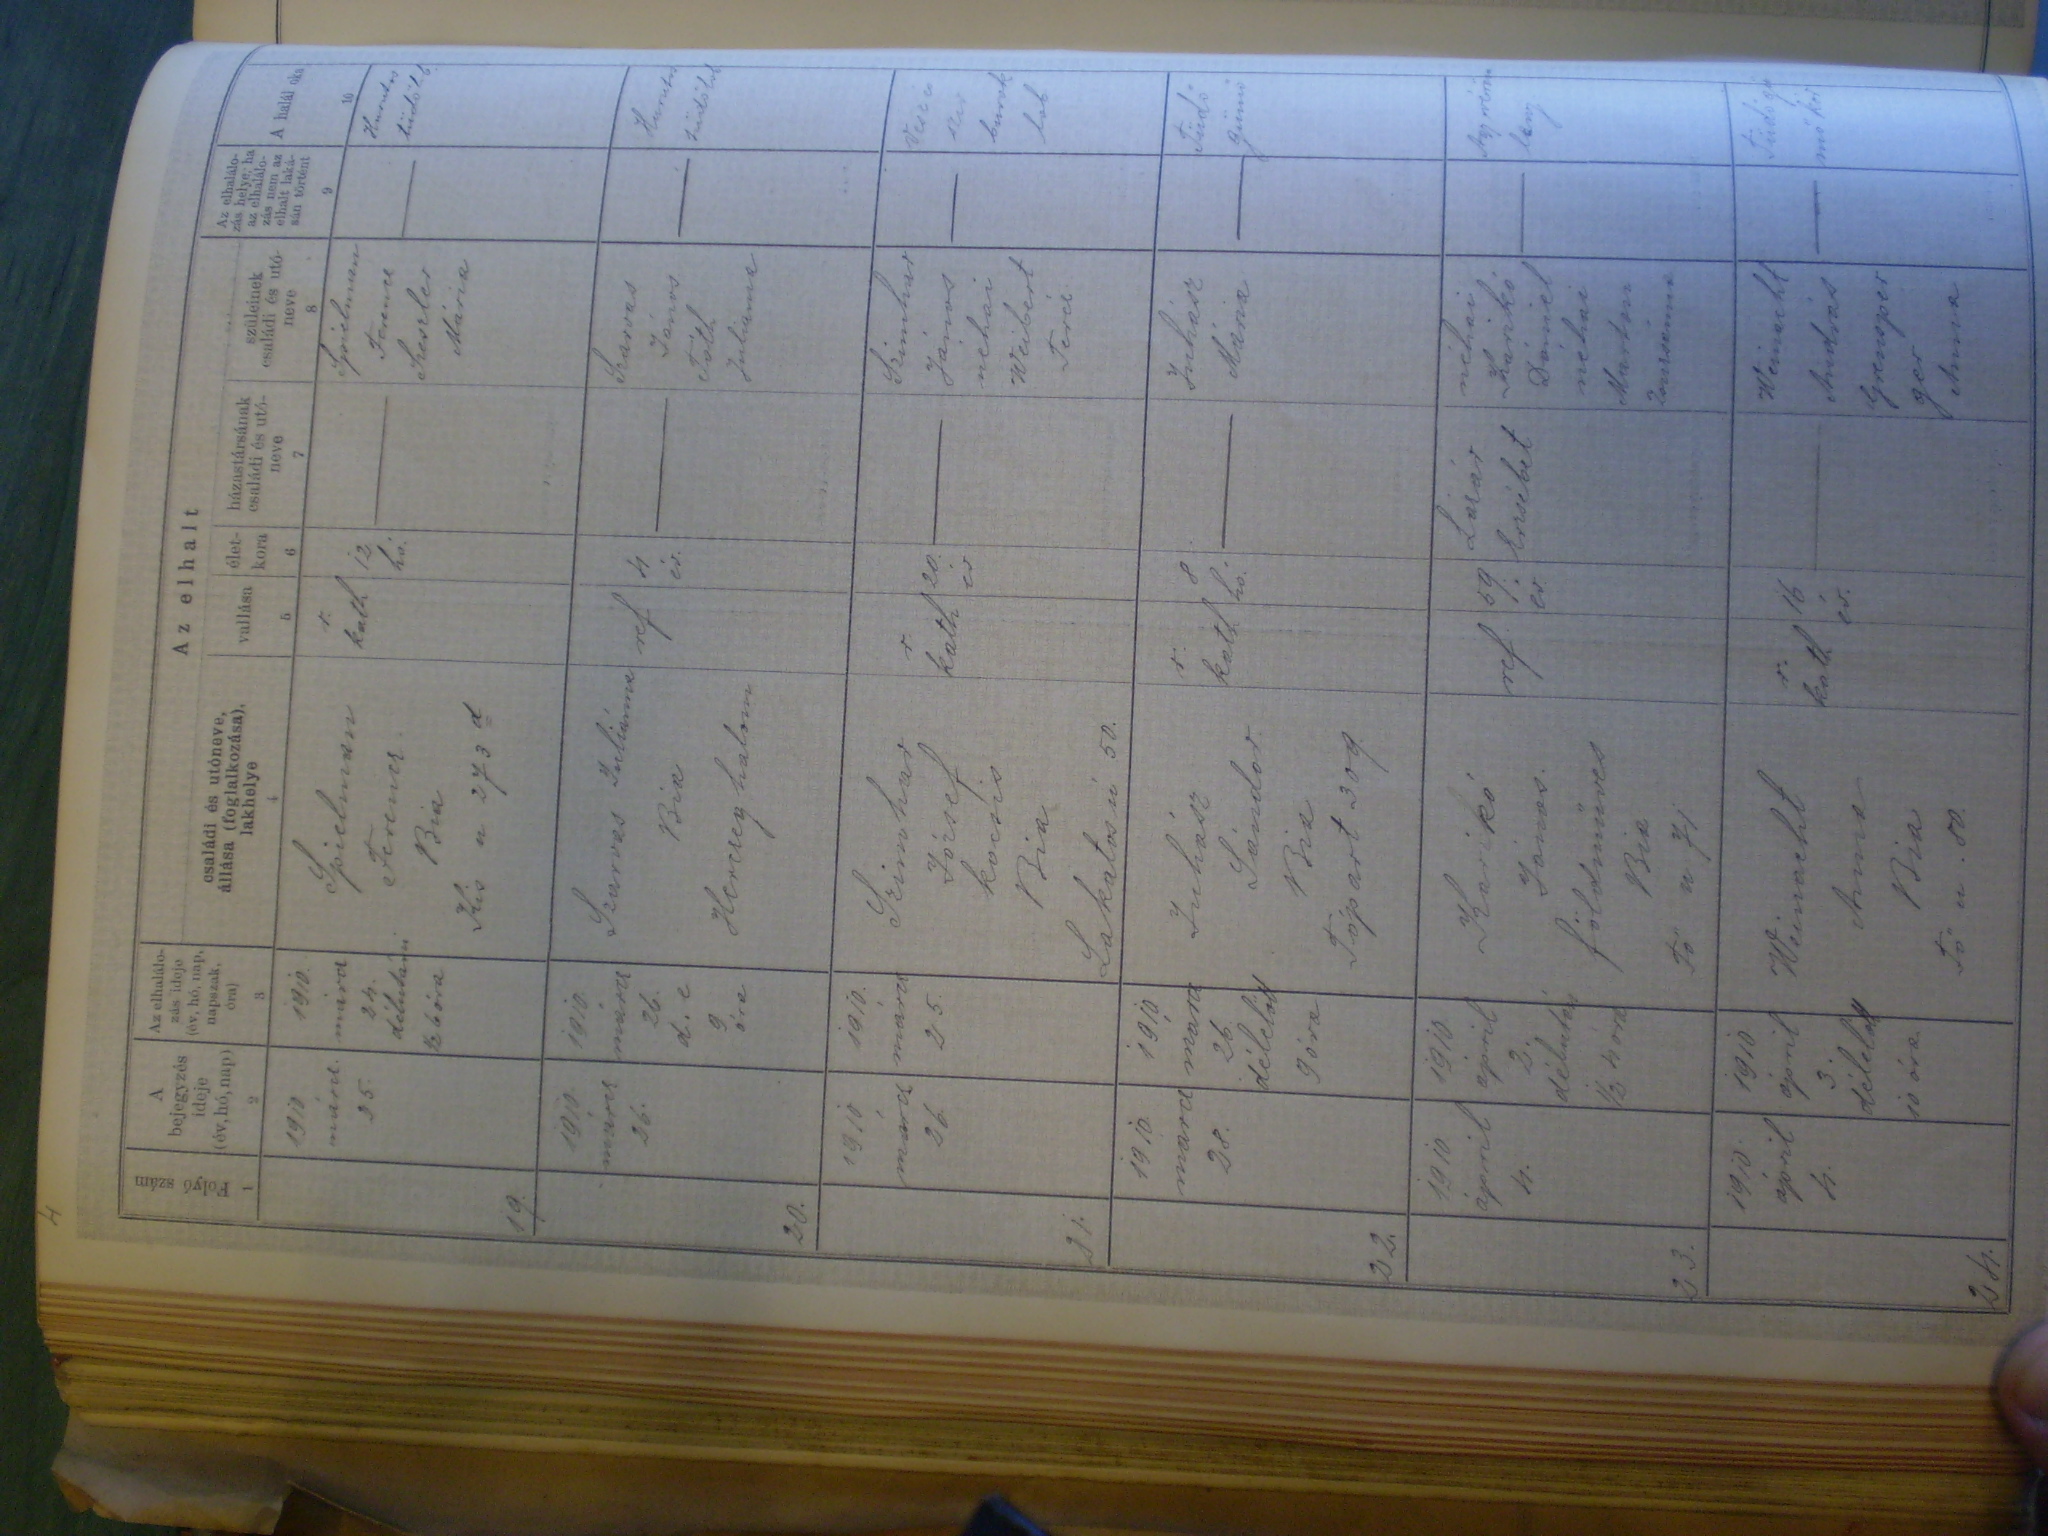 4
Az elhalt
Folyó szám
A
bejegyzés
ideje
(év, hó, nap)
Az elhalálo-
zás ideje
(év, hó, nap,
napszak,
óra)
családi és utóneve,
állása (foglalkozása),
lakhelye
vallása
élet-
kora
házastársának
családi és utó-
neve
szüleinek
családi és utó-
neve
Az elhalálo-
zás helye, ha
az elhalálo-
zás nem az
elhalt laká-
sán történt
A halál oka
1
2
3
4
5
6
7
8
9
10
19.
1910
márc.
25.
1910.
márcz
24.
délutáni
½6 óra
Spielman
Ferencz.
Bia
Kis u 273 d
r.
kath
12
hó.
Spielman
Ferencz
Keszler
Mária
Hurutos
tüdőlob
20.
1910.
márcz
26.
1910.
márcz
26.
d. e
9
óra
Szarvas Juliánna
Bia
Herczeghalom
ref
4
év.
Szarvas
János
Tóth
Juliánna
Hurutos
tüdőlob
21.
1910
márcz
26.
1910.
márcz
25.
Szimhar
József
kocsis
Bia
Lakatos ú 50.
r.
kath
20.
év
Szimhar
János
néhai
Weibert
Teréz
22.
1910.
marcz
28.
1910
marcz
26
délelőtt
9 óra
Juhász
Sándor
Bia
Tópart 309.
r.
kath
8
hó.
Juhász
Mária
Tüdő
gümő
23.
1910
április
4.
1910
április
2.
délután
½ 4 óra
Karikó
János.
földműves
Bia
Fő u 71
ref
59.
év
Lázár
Erzsébet
néhai
Karikó
Dániel
néhai
Zsuzsánna
24.
1910.
április
4.
1910
április
3.
délelőtt
10 óra.
Weinacht
Anna
Bia
Fő u. 50.
r.
kath
16
év.
Weinacht
András
Anna